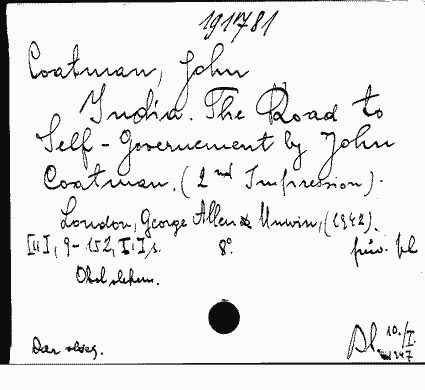 191781
Coatman, John
India. The Road to
Self-Government by John
Coatman. (2nd Impression).
London, George Allen & Unwin, (1942).
[III], 9-152, [I] s. 8° pův. pl
Obal slepen.
Dar 10./I.
1947